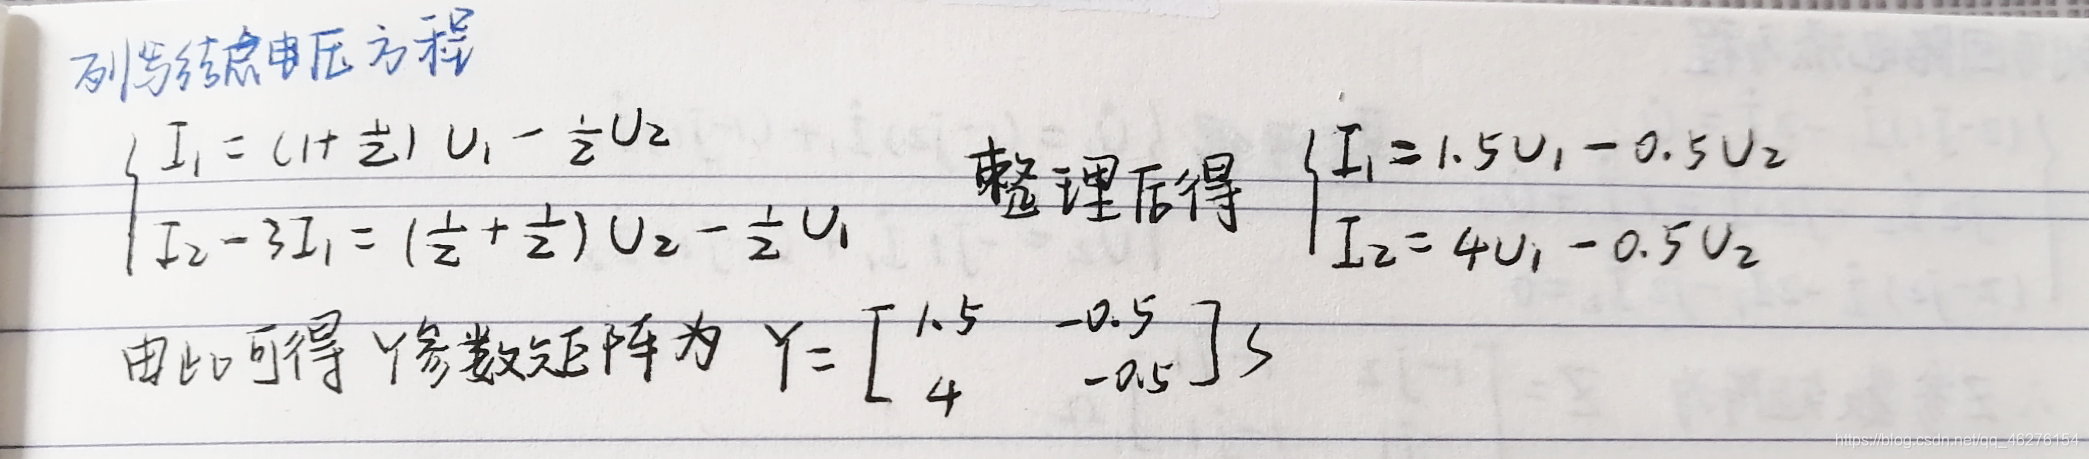 列写结点电压方程
I₁ = (1+½) U₁ - ½U₂
I₂ - 3I₁ = (½ + ½) U₂ - ½ U₁
整理后得
I₁ = 1.5U₁ - 0.5U₂
I₂ = 4U₁ - 0.5U₂
由此可得 Y参数矩阵为 Y = [1.5 -0.5
4 -0.5] S
https://blog.csdn.net/qq_46276154